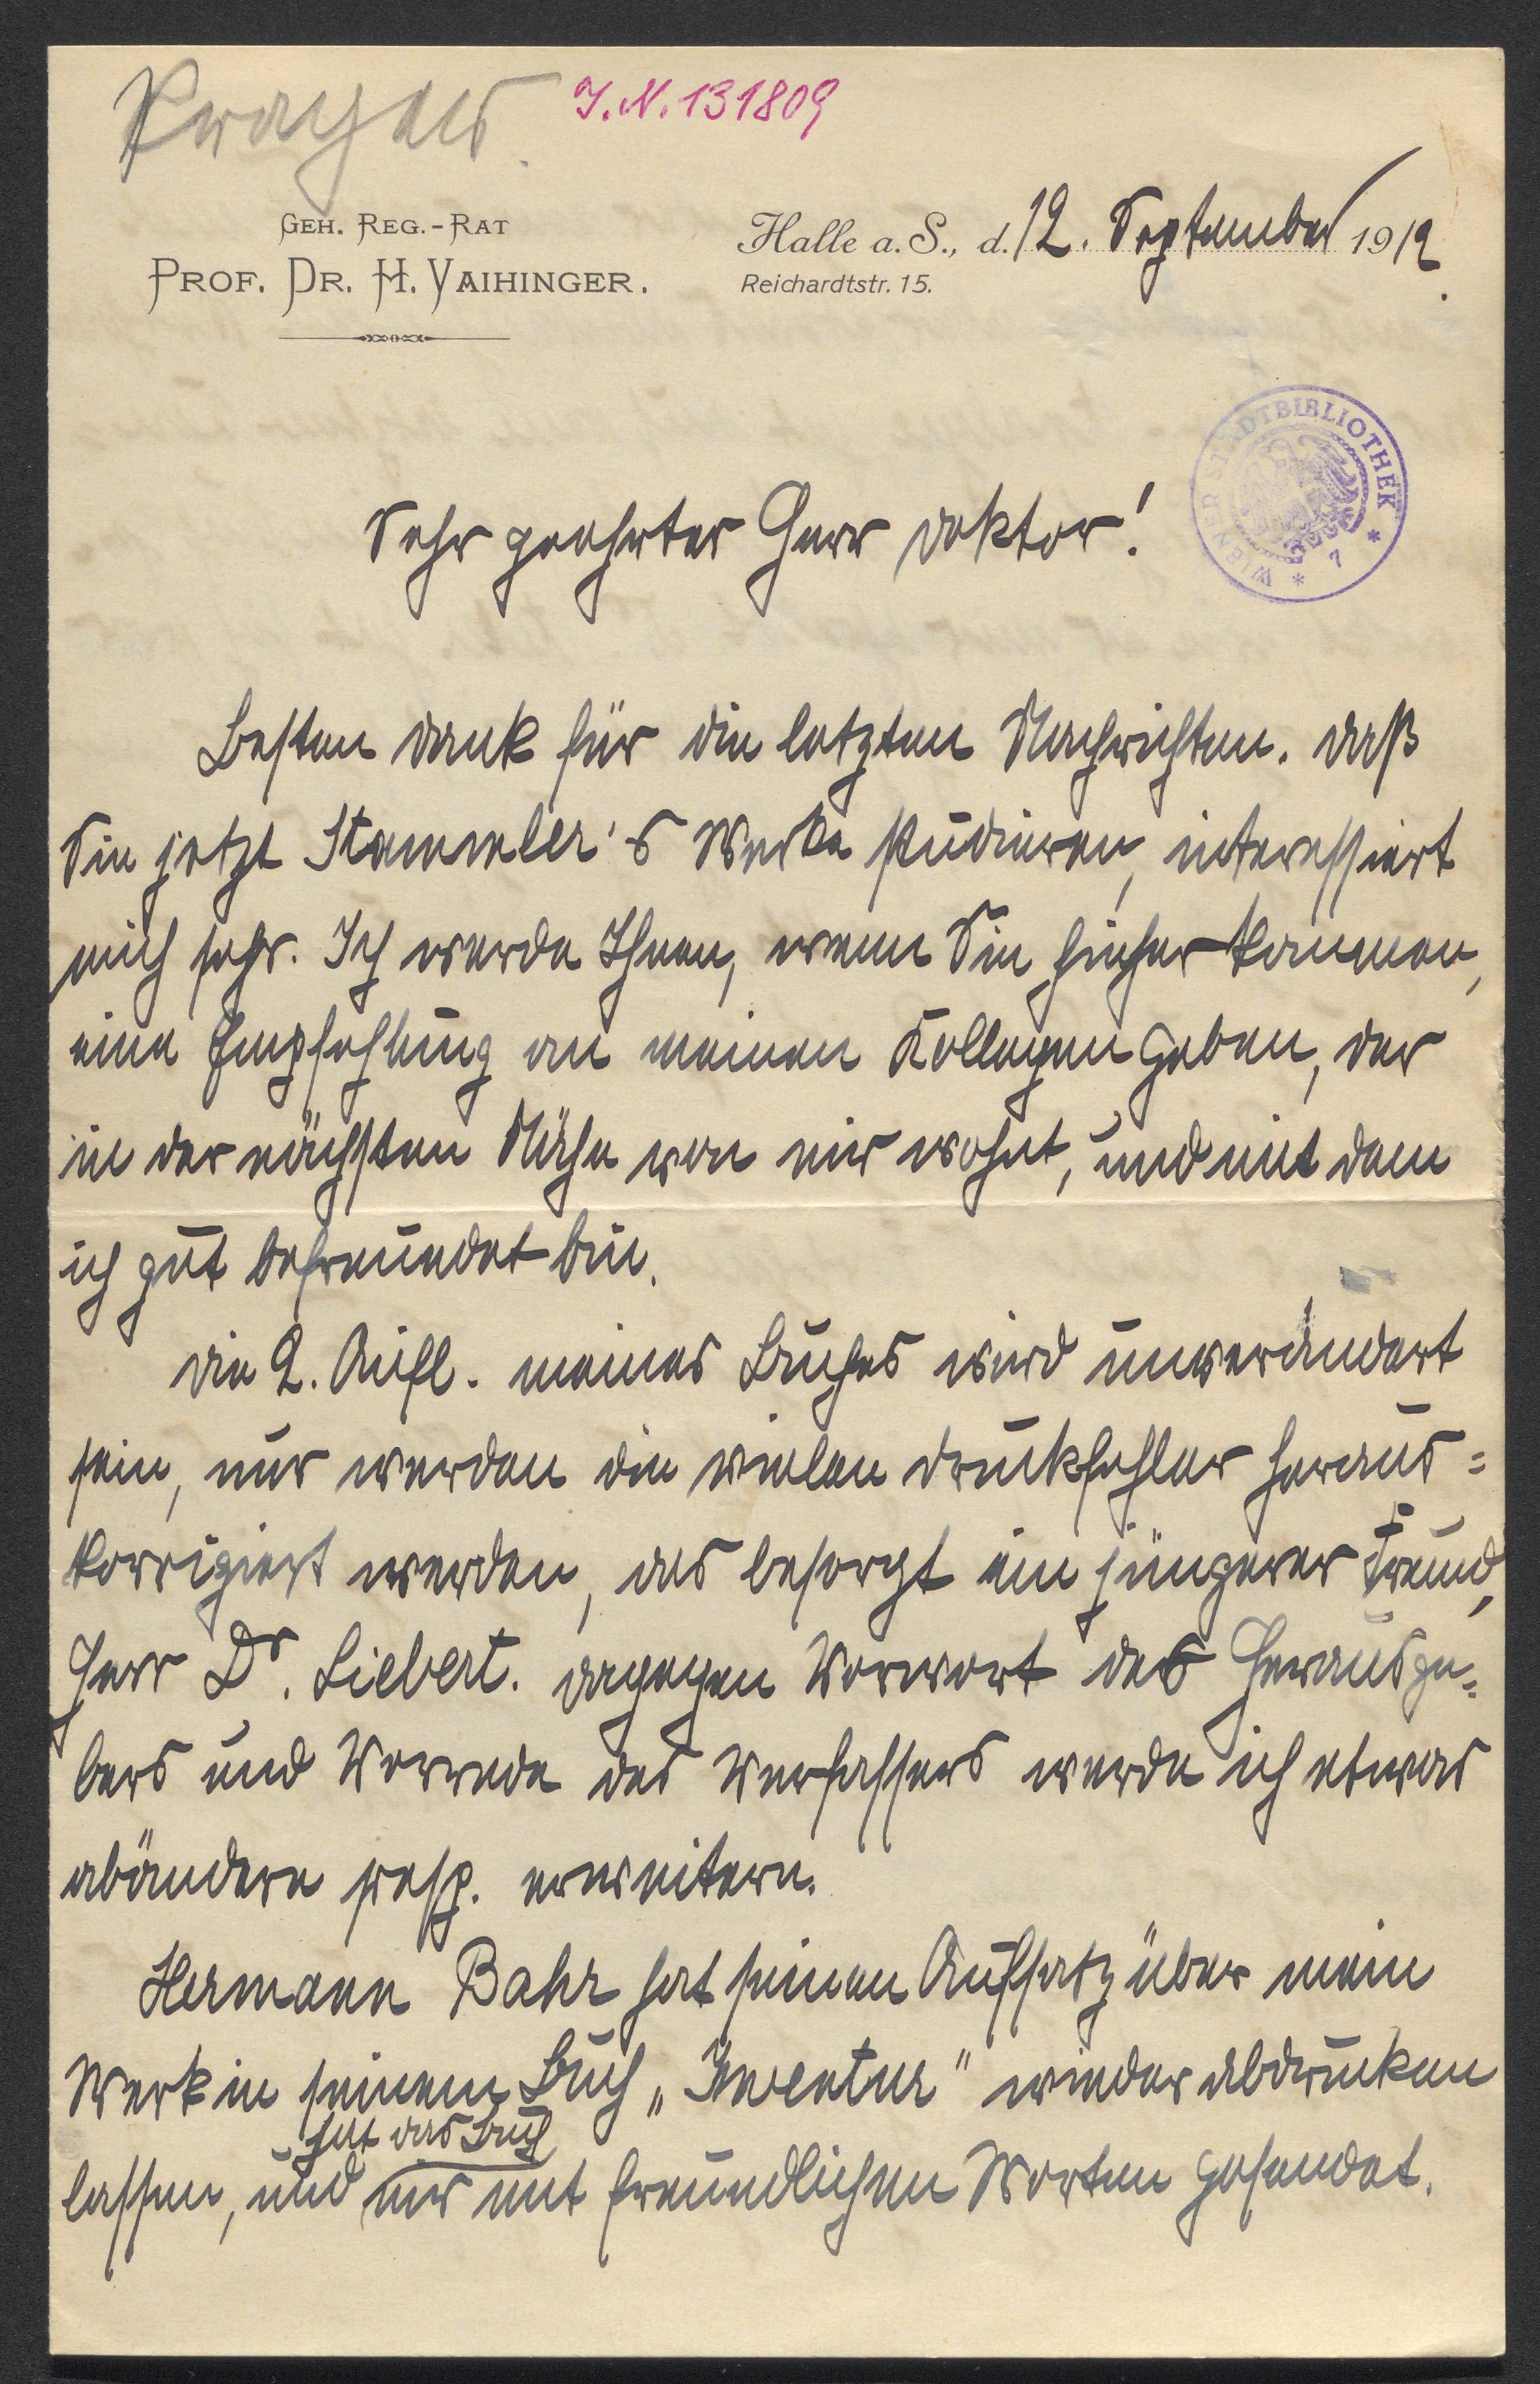 Kraus
J. N. 131809
GEH. REG.-RAT
PROF. DR. H. VAIHINGER.
Halle a. S., d. 12. September 1912.
Reichardtstr. 15.
WIENER STADTBIBLIOTHEK * 7 *
Sehr geehrter Herr Doktor!
Besten Dank für die letzten Nachrichten. Daß
Sie jetzt Stammler's Werke studieren, interessiert
mich sehr. Ich werde Ihnen, wenn Sie hieher kommen,
eine Empfehlung an meinen Kollegen geben, der
in der nächsten Nähe von mir wohnt, und mit dem
ich gut befreundet bin.
Die 2. Aufl. meines Buches wird unverändert
sein, nur werden die vielen Druckfehler heraus=
korrigiert werden, das besorgt ein jüngerer Freund,
Herr Dr. Liebert. Dagegen Vorwort des Herausge=
bers und Vorrede des Verfassers werde ich etwas
abändern resp. erweitern.
Hermann Bahr hat seinen Aufsatz über mein
Werk in seinem Buch „Inventur" wieder abdrucken
hat das Buch
lassen, und mir mit freundlichen Worten gesendet.